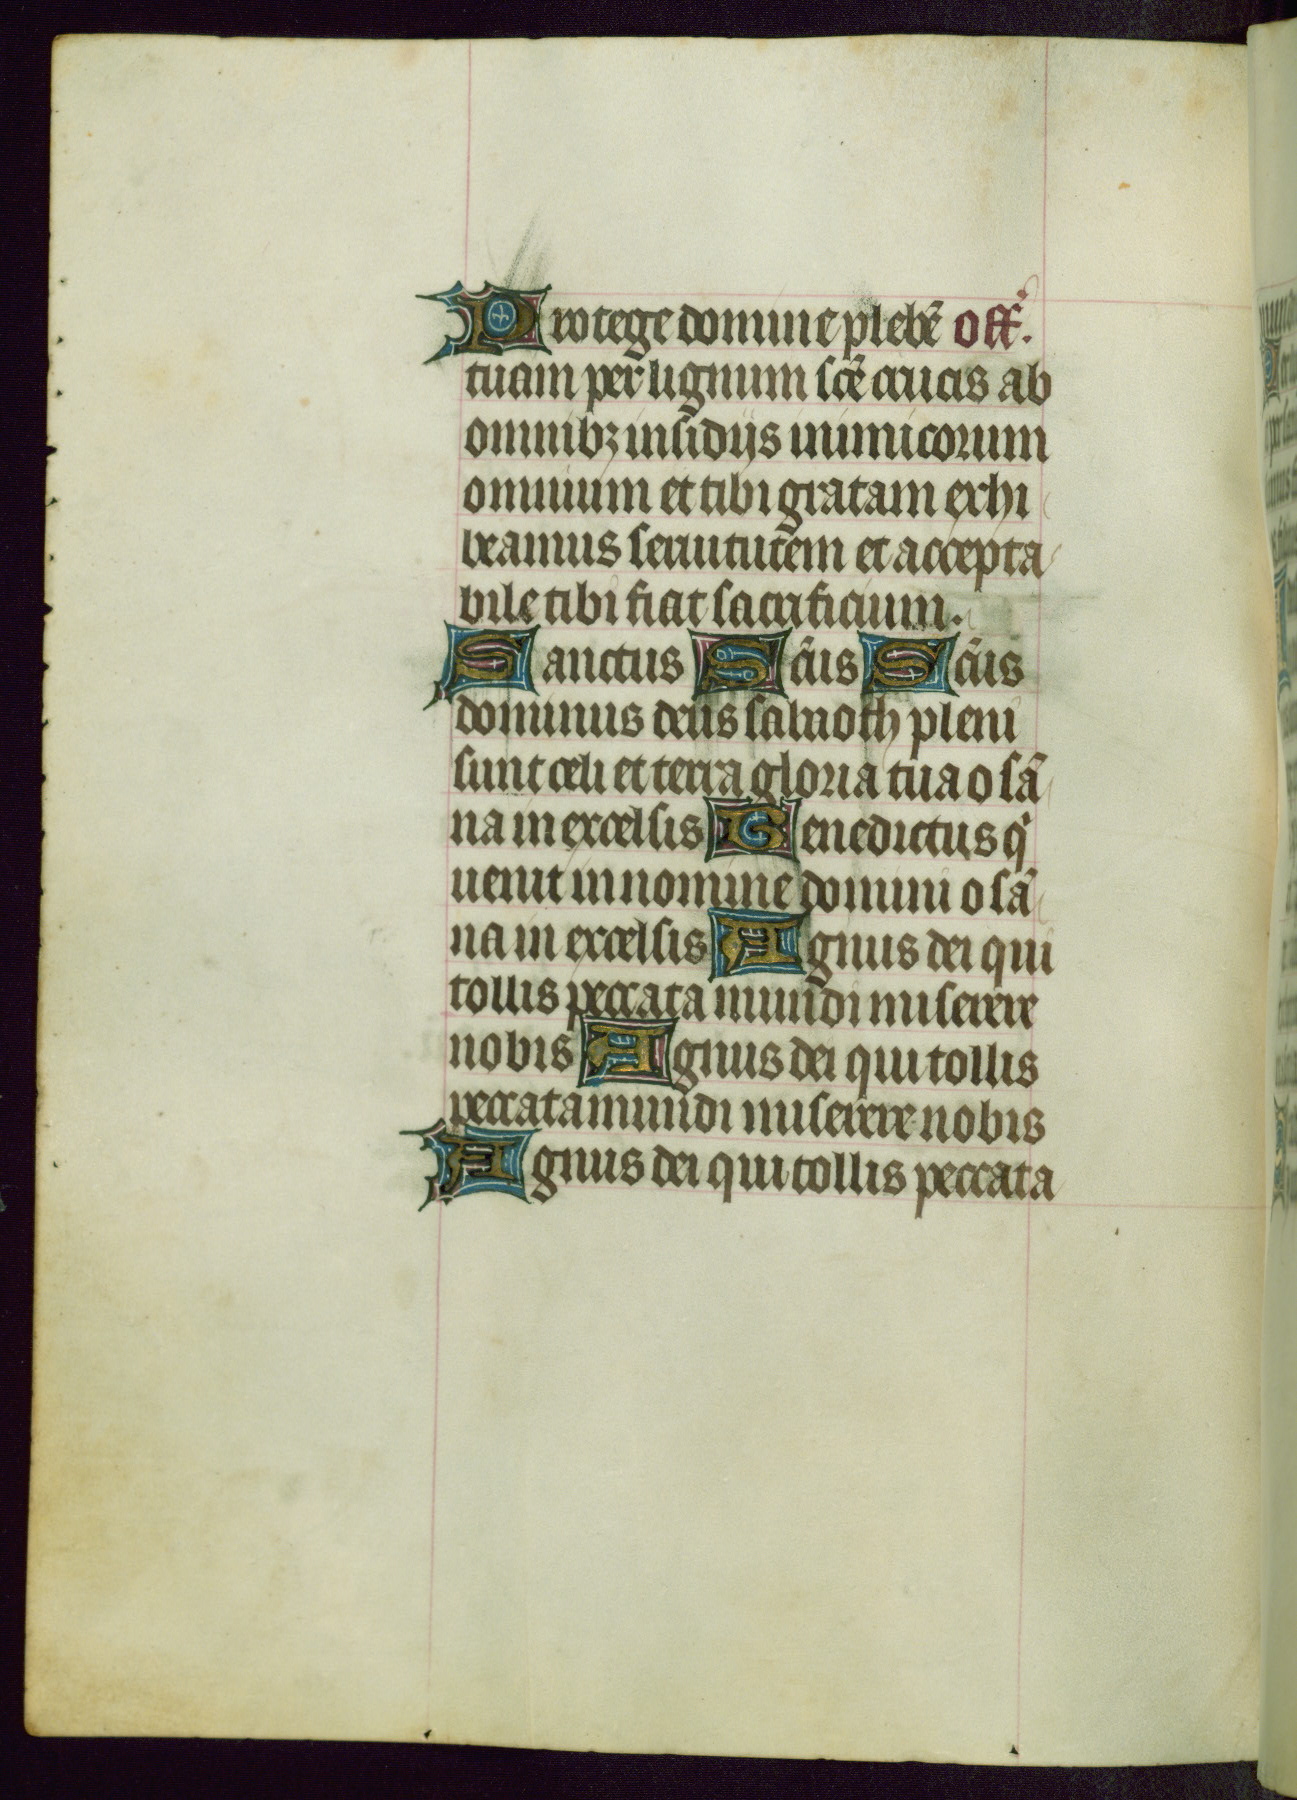 Protege domine plebē off̄.
tuam per lignum scē crucis ab
omnibꝫ insidijs inimicorum
omnium et tibi gratam exhi
beamus seruitutem et accepta
bile tibi fiat sacrificium.
Sanctus Sc̄us Sc̄us
dominus deus sabaoth pleni
sunt celi et terra gloria tua o sā
na in excelsis Benedictus qͥ
uenit in nomine domini o sā
na in excelsis Agnus dei qui
tollis peccata mundi miserere
nobis Agnus dei qui tollis
peccata mundi miserere nobis
Agnus dei qui tollis peccata